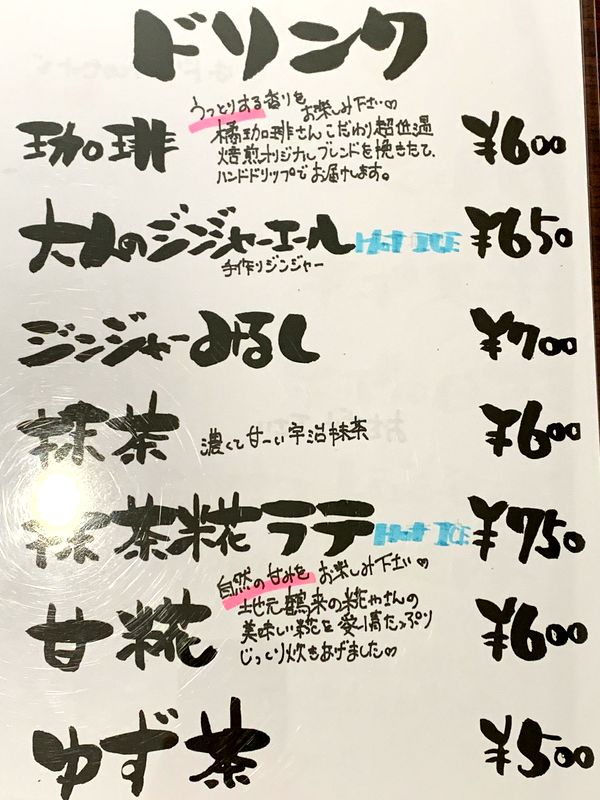 ドリンク
うっとりする香りを
お楽しみ下さい♡
珈琲
橘珈琲さんこだわり超低温
焙煎オリジナルブレンドを挽きたて、
ハンドドリップでお届けします。
¥600
大人のジンジャーエール Hot ICE ¥650
手作りジンジャー
ジンジャーみるし ¥700
抹茶 濃くて甘ーい宇治抹茶 ¥600
抹茶糀ラテ Hot ICE ¥750
自然の甘みを お楽しみ下さい♡
甘糀
地元鶴来の糀やさんの
美味しい糀を愛情たっぷり
じっくり炊きあげました♡
¥600
ゆず茶 ¥500